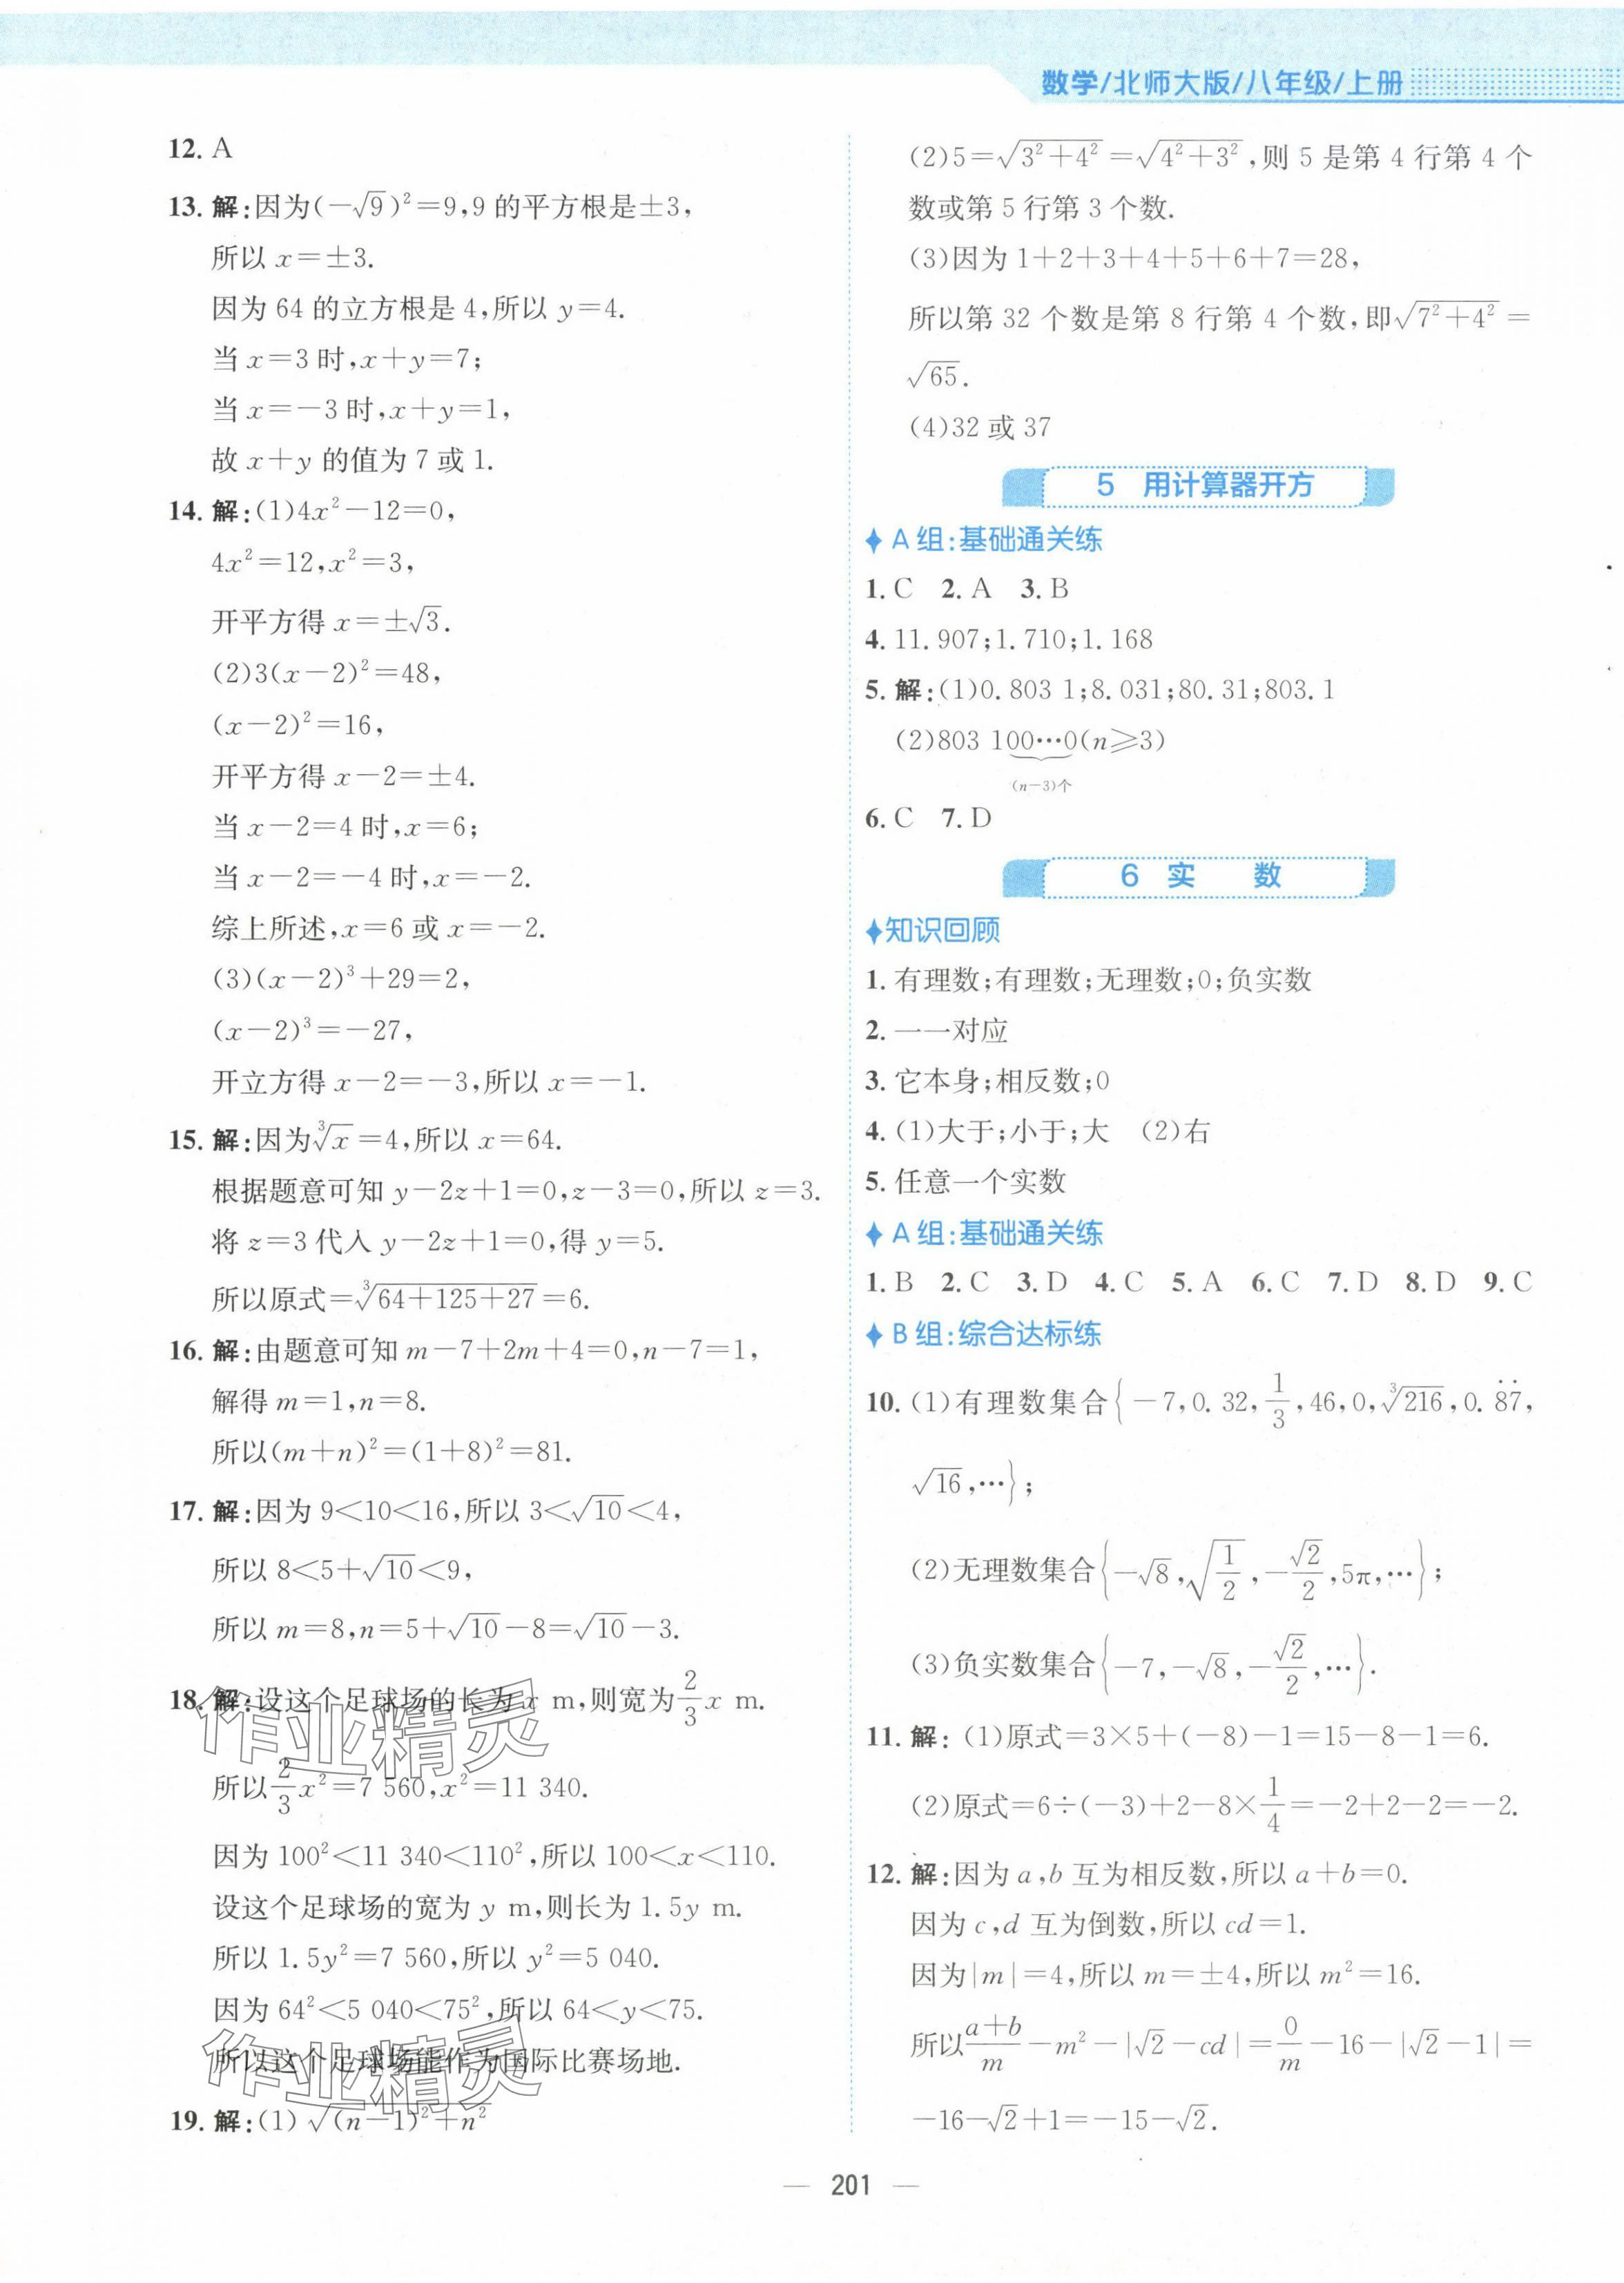 数学/北师大版/八年级/上册
12. A
13. 解:因为(-√9)²=9,9的平方根是±3,
所以 x=±3.
因为 64 的立方根是 4,所以 y=4.
当 x=3 时,x+y=7;
当 x=-3 时,x+y=1,
故 x+y 的值为 7 或 1.
14. 解:(1)4x²-12=0,
4x²=12,x²=3,
开平方得 x=±√3.
(2)3(x-2)²=48,
(x-2)²=16,
开平方得 x-2=±4.
当 x-2=4 时,x=6;
当 x-2=-4 时,x=-2.
综上所述,x=6 或 x=-2.
(3)(x-2)³+29=2,
(x-2)³=-27,
开立方得 x-2=-3,所以 x=-1.
15. 解:因为∛x=4,所以 x=64.
根据题意可知 y-2z+1=0,z-3=0,所以 z=3.
将 z=3 代入 y-2z+1=0,得 y=5.
所以原式=∛(64+125+27)=6.
16. 解:由题意可知 m-7+2m+4=0,n-7=1,
解得 m=1,n=8.
所以(m+n)²=(1+8)²=81.
17. 解:因为 9<10<16,所以 3<√10<4,
所以 8<5+√10<9,
所以 m=8,n=5+√10-8=√10-3.
18. 解:设这个足球场的长为 x m,则宽为2/3 x m.
所以2/3 x²=7 560,x²=11 340.
因为 100²<11 340<110²,所以 100<x<110.
设这个足球场的宽为 y m,则长为 1.5y m.
所以 1.5y²=7 560,所以 y²=5 040.
因为 64²<5 040<75²,所以 64<y<75.
所以这个足球场能作为国际比赛场地.
19. 解:(1)√((n-1)²+n²)
作业精灵
作业精灵
(2)5=√(3²+4²)=√(4²+3²),则 5 是第 4 行第 4 个
数或第 5 行第 3 个数.
(3)因为 1+2+3+4+5+6+7=28,
所以第 32 个数是第 8 行第 4 个数,即√(7²+4²)=
√65.
(4)32 或 37
5 用计算器开方
A 组:基础通关练
1. C 2. A 3. B
4. 11.907;1.710;1.168
5. 解:(1)0.803 1;8.031;80.31;803.1
(2)803 100…0(n≥3)
(n-3)个
6. C 7. D
6 实 数
知识回顾
1. 有理数;有理数;无理数;0;负实数
2. 一一对应
3. 它本身;相反数;0
4. (1)大于;小于;大 (2)右
5. 任意一个实数
A 组:基础通关练
1. B 2. C 3. D 4. C 5. A 6. C 7. D 8. D 9. C
B 组:综合达标练
10. (1)有理数集合{-7,0.32,1/3,46,0,∛216,0.8̇7̇,
√16,…};
(2)无理数集合{-√8,√(1/2),-√2/2,5π,…};
(3)负实数集合{-7,-√8,-√2/2,…}.
11. 解:(1)原式=3×5+(-8)-1=15-8-1=6.
(2)原式=6÷(-3)+2-8×1/4=-2+2-2=-2.
12. 解:因为 a,b 互为相反数,所以 a+b=0.
因为 c,d 互为倒数,所以 cd=1.
因为|m|=4,所以 m=±4,所以 m²=16.
所以(a+b)/m-m²-|√2-cd|=0/m-16-|√2-1|=
-16-√2+1=-15-√2.
— 201 —